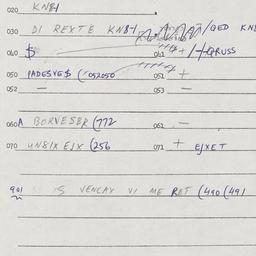 020 KNB4
030 DI REXTE KNB4 /QED KNB
040 $ 041 + /+QRUSS
050 IADESYE$ (052050 051 +
052 — 053 —
060A BORVESEB (772 061 —
070 UNSIX EJX (256 071 + EJXET
901 IS VENCAX VI ME RET (490 (491